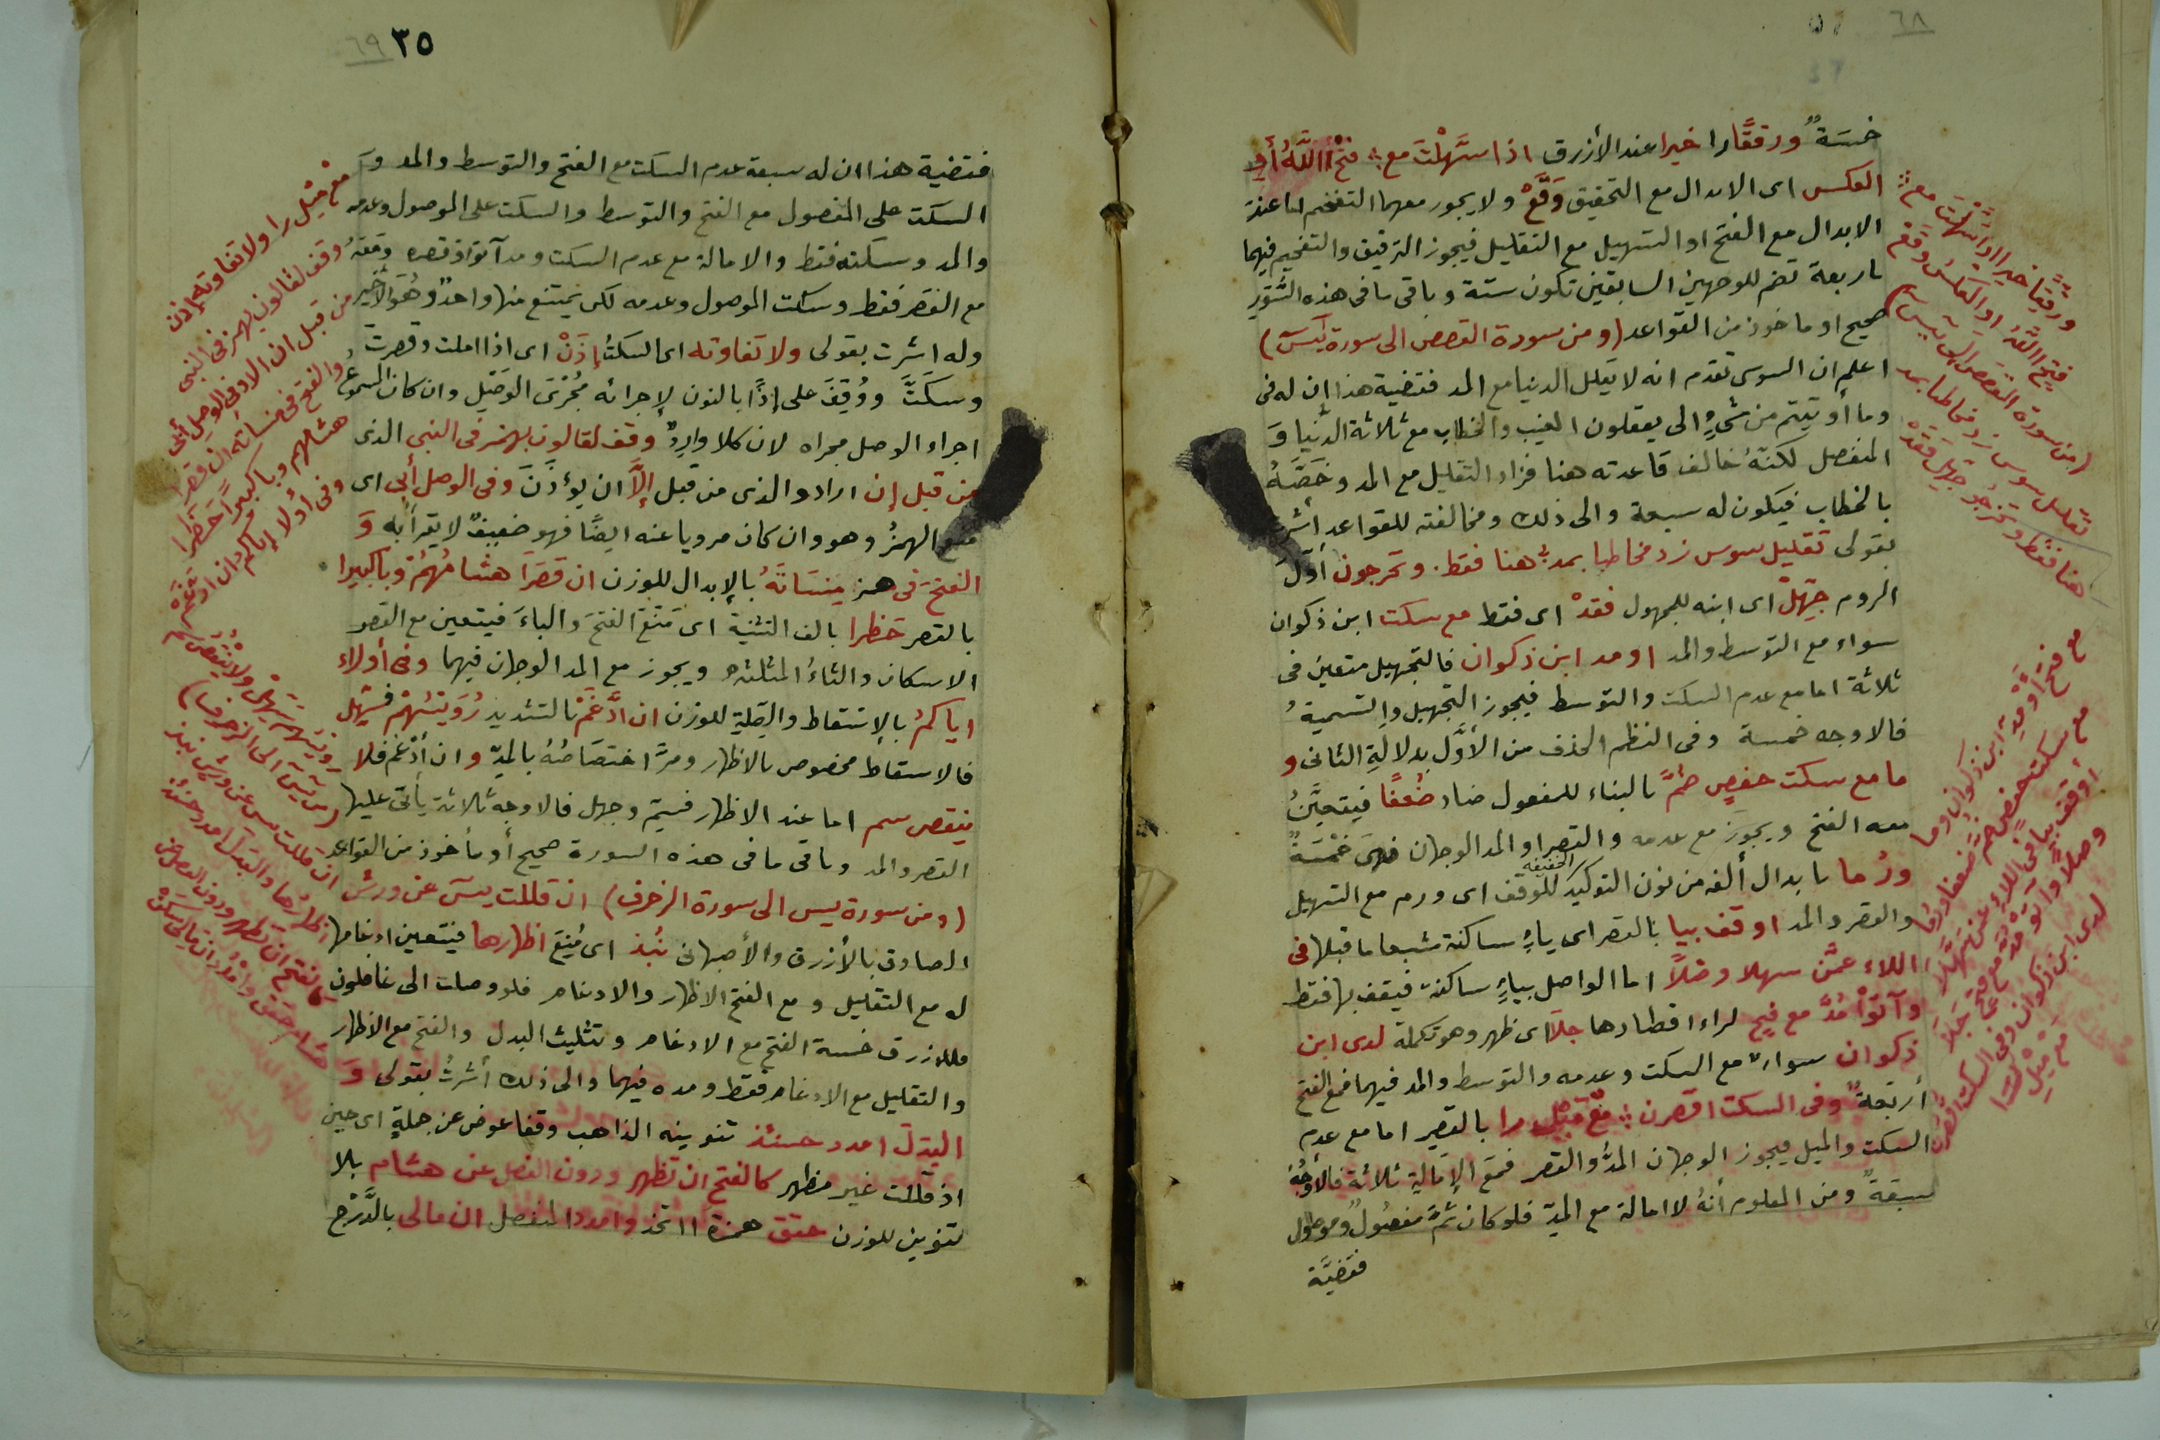 ٦٨
خمسَةٌ ورققًا را خيرا عند الأزرق اذا سَهَّلْتَ مع فتحْ آاللَّهُ أَوِ
العكس اى الابدال مع التحقيق وَقَّعْ ولا يجوز معهما التفخيم اما عند
الابدال مع الفتح او التسهيل مع التقليل فيجوز الترقيق والتفخيم فيهما
باربعة تضم للوجهين السابقين تكون ستة وباقى ما فى هذه السُّوَرِ
صحيح او ماخوذ من القواعد (ومن سورة القصص الى سورة يَسَ)
اعلم ان السوسى تقدم انه لا يقلل الدنيا مع المد فقضية هذا ان له فى
وما أوتيتم من شَىْءٍ الى يعقلون الغيب والخطاب مع ثلاثة الدنيا وَ
المنفصل لكنَّهُ خالف قاعدته هنا فزاد التقليل مع المد وخَصَّهُ
بالخطاب فيكون له سبعة والى ذلك ومخالفته للقواعد أشرت
بقولى تقليل سوس زد مخاطبا بمد هنا فقط. وتخرجون أوَّلَ
الروم جَهِّلْ اى ابنه للمجهول فقدْ اى فقط مع سكت ابن ذكوان
سواء مع التوسط والمد او مد ابن ذكوان فالتجهيل متعين فى
ثلاثة اما مع عدم السكت والتوسط فيجوز التجهيل والتسمية
فالاوجه خمسة وفى النظم الحذف من الأوَّل بدلالةِ الثانى و
ما مع سكت حفصٍ ضُمَّ بالبناء للمفعول ضاد ضُعفًا فيتعيَّنُ
معه الفتح ويجوز مع عدمه والقصر او المد الوجهان فهىَ خمْسَةٌ
ورُما بابدال ألفه من نون التوكيد الخفيفة للوقف اى ورم مع التسهيل
والقصر والمد او قف بيا بالقصر اى ياءٍ ساكنة مشبعا ما قبلها فى
اللاء عمَّن سهلا وصْلاً اما الواصل بياءٍ ساكنة فيقف بها فقط
وآتوْا مُدَّ مع فتح لراء اقطارها جلَا اى ظهر وهو تكملة لدى ابن
ذكوان سواء مع السكت وعدمه والتوسط والمد فيهما فمع الفتح
أربَعةٌ وفى السكت اقصرن مَعْ مَيْل را بالقصر اما مع عدم
السكت والميل فيجوز الوجهان المدُّ والقصر فمعَ الإمالةِ ثلاثة فالأوجُهُ
سبعَةٌ ومن المعلوم أنهُ لا امالة مع المدِّ فلو كان ثَمَّ مفصُولٌ وموصول
فقضيَّة
ورققًا خيرا اذا سَهَّلْتَ مع
فتح آاللَّهُ او العكس وَقَعْ
(من سورة القصص الى يَسَ)
تقليل سوس زد مخاطبا بمد
هنا فقط وتخرجُو جَهِّل فقدْ
مع سكت او مد ابن ذكوان وما
مع سكت حفصٍ ضُمَّ ضعفا ورُما
أو قف بيا فى اللاء عمن سَهَّلا
وصلاً وآتوْ مُدَّ مع فتحٍ جَلَا
لدى ابن ذكوان وفى السكت اقصرن
مع مَيْلِ را
٣٥ ٦٩
فقضية هذا ان له سبعة عدم السكت مع الفتح والتوسط والمد وَ
السكت على المفصول مع الفتح والتوسط والسكت على الموصول وعدمه
والمد وسكته فقط والامالة مع عدم السكت ومد آتوْا وقصره ومَعَهُ
مع القصر فقط وسكت الموصول وعدمه لكن يمتنع منها واحدٌ وهُوَ الأخير
وله اشرت بقولى ولا تفاوته اى السكتُ إذَنْ اى اذا املت وقصرت
وسكَتَّ ووُقِفَ على إذًا بالنون لإجرائه مُجْرَى الوَصْلِ وان كان المسموعُ
اجراء الوصل مجراه لان كلا واردٌ وقف لقالون بهمز فى النبى الذى
من قبل إن اراد والذى من قبل إلَّا ان يوْذَنَ وفى الوصل أبِى اى
منع الهمزُ وهو وان كان مرويا عنه ايضًا فهو ضعيفٌ لا يقرأ به وَ
الفتحَ فى همز مِنسَاتَهُ بالإبدال للوزن ان قصَرَا هشامُهُمْ وبا كبيرا
بالقصر حَظرا بالف التثنية اى مَنَعَ الفتحَ والباءَ فيتعين مع القصر
الاسكان والثاءُ المثلثة ويجوز مع المد الوجهان فيهما وفى أولاء
اياكمُ بالإسقاط والصِلةِ للوزن ان ادَّغَمْ بالتشديد رُوَيْسُهُمْ فسَهِّل
فالاسقاط مخصوص بالاظهار ومرَّ اختصَاصُهُ بالمدِّ وان أدْغم فلا
ينقص سم اما عند الاظهار فسَمِّ وجهل فالاوجه ثلاثة يأتى عليها
القصر والمد وباقى ما فى هذه السورة صحيح أو مأخوذ من القواعد
(ومن سورة يس الى سورة الزخرف) ان قللت يسَ عن ورش
الصادق بالأزرق والأصبهانى نُبذ اى مُنِعَ اظهارها فيتعين ادغامها
له مع التقليل ومع الفتح الاظهار والادغام فلو وصلت الى غافلون
فللازرق خمسة الفتح مع الادغام وتثليث البدل والفتح مع الاظهار
والتقليل مع الادغام فقط ومده فيهما والى ذلك أشرتُ بقولى وَ
البَدلَ امدد حينئذ تنوينه الذاهب وقفا عوض عن جملةٍ اى حين
اذ قللت غير مظهر كالفتح ان تظهر ودون الفصل عن هشام بلا
تنوين للوزن حقق همزة ااتخذ وامدد المنفصل ان مالى بالدَّرْج
مَعْ مَيْل را ولا تفاوته إذن
وقف لقالون بهمز فى النبى
من قبل ان الا وفى الوصل أبى
والفتح فى منساته ان قصرا
هشامهم وبا كبيرًا حَظرا
وفى أولاء اياكم ان ادغم
رويسهم سَهِّل ولا ينقُص سم
(من يسَ الى الزخرف)
ان قللت يس عن ورش نبذ
اظهارُها والبَدلَ امدد حينئذ
كالفتح ان تظهر ودون الفصل عن
هشام حقق وامدُد ان مالى سكن